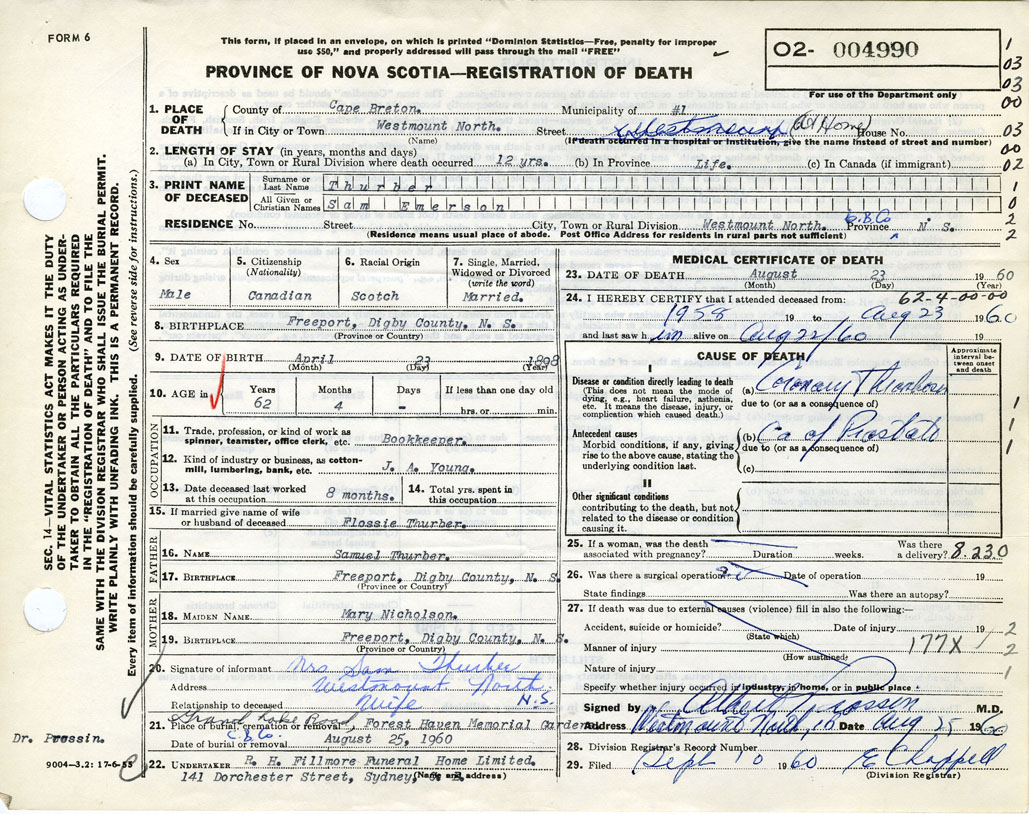 FORM 6
This form, if placed in an envelope, on which is printed "Dominion Statistics—Free, penalty for improper
use $50," and properly addressed will pass through the mail "FREE"
O2- 004990
For use of the Department only
PROVINCE OF NOVA SCOTIA—REGISTRATION OF DEATH
1. PLACE OF DEATH { County of Cape Breton. Municipality of #1
If in City or Town Westmount North. Street Westmount (At Home) House No.
(Name) (If death occurred in a hospital or institution, give the name instead of street and number)
2. LENGTH OF STAY (in years, months and days)
(a) In City, Town or Rural Division where death occurred 12 yrs. (b) In Province Life. (c) In Canada (if immigrant)
3. PRINT NAME OF DECEASED
Surname or Last Name Thurber
All Given or Christian Names Sam Emerson
RESIDENCE No. Street City, Town or Rural Division Westmount North. C.B.Co Province N S.
(Residence means usual place of abode. Post Office Address for residents in rural parts not sufficient)
1
03
03
00
03
00
02
1
0
2
2
4. Sex Male
5. Citizenship (Nationality) Canadian
6. Racial Origin Scotch
7. Single, Married, Widowed or Divorced (write the word) Married.
8. BIRTHPLACE Freeport, Digby County, N. S.
(Province or Country)
9. DATE OF BIRTH April 23 1898
(Month) (Day) (Year)
10. AGE in Years 62 Months 4 Days - If less than one day old hrs. or min.
OCCUPATION
11. Trade, profession, or kind of work as spinner, teamster, office clerk, etc. Bookkeeper.
12. Kind of industry or business, as cotton-mill, lumbering, bank, etc. J. A. Young.
13. Date deceased last worked at this occupation 8 months.
14. Total yrs. spent in this occupation
15. If married give name of wife or husband of deceased Flossie Thurber.
FATHER
16. NAME Samuel Thurber.
17. BIRTHPLACE Freeport, Digby County, N S.
(Province or Country)
MOTHER
18. MAIDEN NAME Mary Nicholson.
19. BIRTHPLACE Freeport, Digby County, N S.
(Province or Country)
20. Signature of informant Mrs Sam Thurber
Address Westmount North, N.S.
Relationship to deceased Wife
Grand Lake Road,
21. Place of burial, cremation or removal Forest Haven Memorial Garden
C.B.Co.
Date of burial or removal August 25, 1960
22. UNDERTAKER R. H. Fillmore Funeral Home Limited.
141 Dorchester Street, Sydney,
(Name and address)
MEDICAL CERTIFICATE OF DEATH
23. DATE OF DEATH August 23 1960
(Month) (Day) (Year)
24. I HEREBY CERTIFY that I attended deceased from: 62-4-00-00
1958 19 to Aug 23 1960
and last saw him alive on Aug 22/60
CAUSE OF DEATH
Approximate interval between onset and death
I
Disease or condition directly leading to death
(This does not mean the mode of dying, e.g., heart failure, asthenia, etc. It means the disease, injury, or complication which caused death.)
(a) Coronary Thrombosis
due to (or as a consequence of)
Antecedent causes
Morbid conditions, if any, giving rise to the above cause, stating the underlying condition last.
(b) Ca of Prostate
due to (or as a consequence of)
(c)
II
Other significant conditions
contributing to the death, but not related to the disease or condition causing it.
1
1
1
25. If a woman, was the death associated with pregnancy? Duration weeks. Was there a delivery? 8.230
26. Was there a surgical operation? Date of operation 19
State findings Was there an autopsy?
27. If death was due to external causes (violence) fill in also the following:—
Accident, suicide or homicide? Date of injury 19
(State which)
Manner of injury 177X
(How sustained)
Nature of injury
Specify whether injury occurred in industry, in home, or in public place
2
2
1
Signed by Albert Prossin M.D.
Address Westmount North, Date Aug 25 1960
28. Division Registrar's Record Number
29. Filed Sept 10 1960 E Chappell
(Division Registrar)
SEC. 14—VITAL STATISTICS ACT MAKES IT THE DUTY
OF THE UNDERTAKER OR PERSON ACTING AS UNDER-
TAKER TO OBTAIN ALL THE PARTICULARS REQUIRED
IN THE "REGISTRATION OF DEATH" AND TO FILE THE
SAME WITH THE DIVISION REGISTRAR WHO SHALL ISSUE THE BURIAL PERMIT.
WRITE PLAINLY WITH UNFADING INK. THIS IS A PERMANENT RECORD.
Every item of information should be carefully supplied. (See reverse side for instructions.)
Dr. Prossin.
9004—3.2: 17-6-58